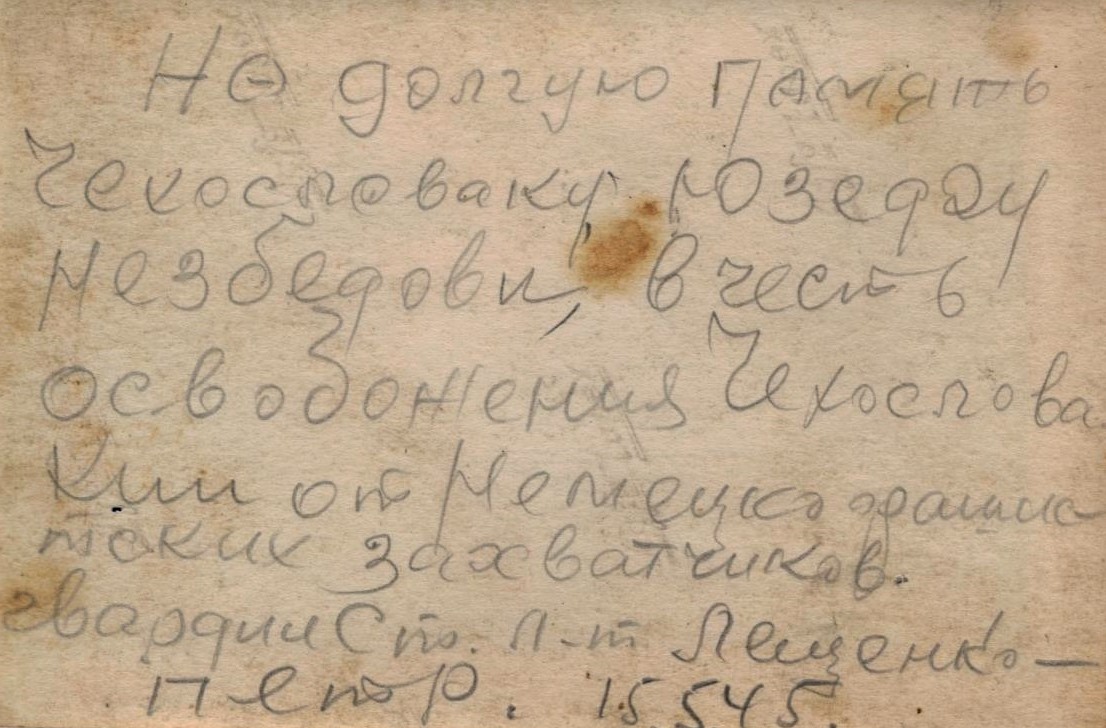 На долгую память
Чехословаку Юзефу
Незбедови, в честь
освобожения Чехослова
кии от Немецко фашис
тских захватчиков.
гвардии Ст. л-т Лещенко —
Петр. 15 5 45.